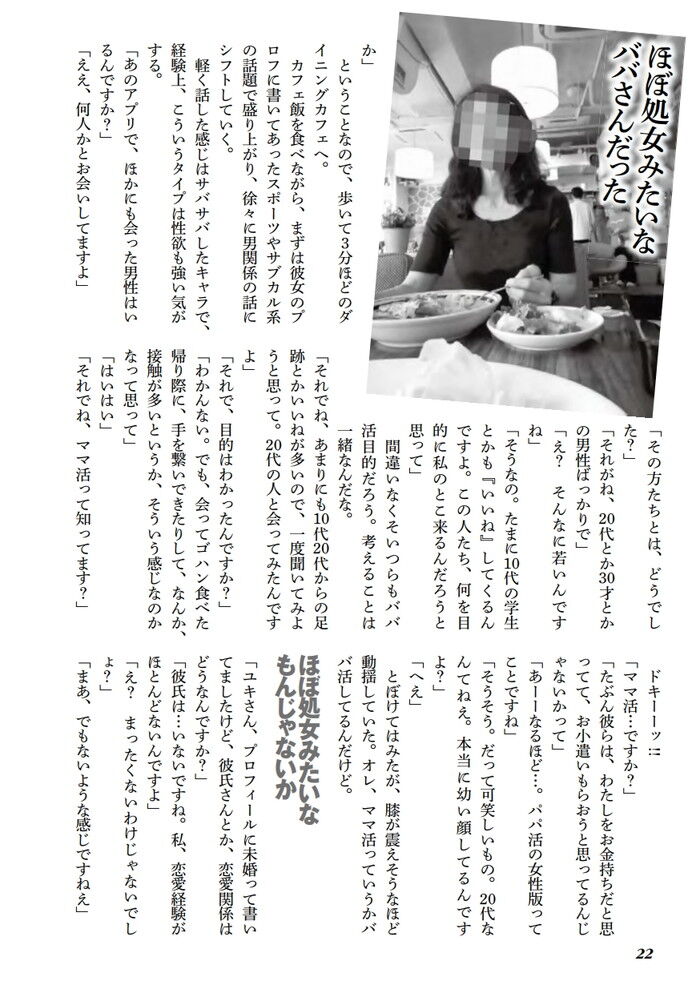 ほぼ処女みたいな
ババさんだった
か」
　ということなので、歩いて３分ほどのダ
イニングカフェへ。
　カフェ飯を食べながら、まずは彼女のプ
ロフに書いてあったスポーツやサブカル系
の話題で盛り上がり、徐々に男関係の話に
シフトしていく。
　軽く話した感じはサバサバしたキャラで、
経験上、こういうタイプは性欲も強い気が
する。
「あのアプリで、ほかにも会った男性はい
るんですか？」
「ええ、何人かとお会いしてますよ」
「その方たちとは、どうでし
た？」
「それがね、20代とか30才とか
の男性ばっかりで」
「え？　そんなに若いんです
ね」
「そうなの。たまに10代の学生
とかも『いいね』してくるん
ですよ。この人たち、何を目
的に私のとこ来るんだろうと
思って」
　間違いなくそいつらもババ
活目的だろう。考えることは
一緒なんだな。
「それでね、あまりにも10代20代からの足
跡とかいいねが多いので、一度聞いてみよ
うと思って。20代の人と会ってみたんです
よ」
「それで、目的はわかったんですか？」
「わかんない。でも、会ってゴハン食べた
帰り際に、手を繋いできたりして、なんか、
接触が多いというか、そういう感じなのか
なって思って」
「はいはい」
「それでね、ママ活って知ってます？」
　ドキーーッ!!
「ママ活…ですか？」
「たぶん彼らは、わたしをお金持ちだと思
ってて、お小遣いもらおうと思ってるんじ
ゃないかって」
「あーーなるほど…。パパ活の女性版って
ことですね」
「そうそう。だって可笑しいもの。20代な
んてねえ。本当に幼い顔してるんです
よ？」
「へえ」
　とぼけてはみたが、膝が震えそうなほど
動揺していた。オレ、ママ活っていうかバ
バ活してるんだけど。
ほぼ処女みたいな
もんじゃないか
「ユキさん、プロフィールに未婚って書い
てましたけど、彼氏さんとか、恋愛関係は
どうなんですか？」
「彼氏は…いないですね。私、恋愛経験が
ほとんどないんですよ」
「え？　まったくないわけじゃないでし
ょ？」
「まあ、でもないような感じですねえ」
22